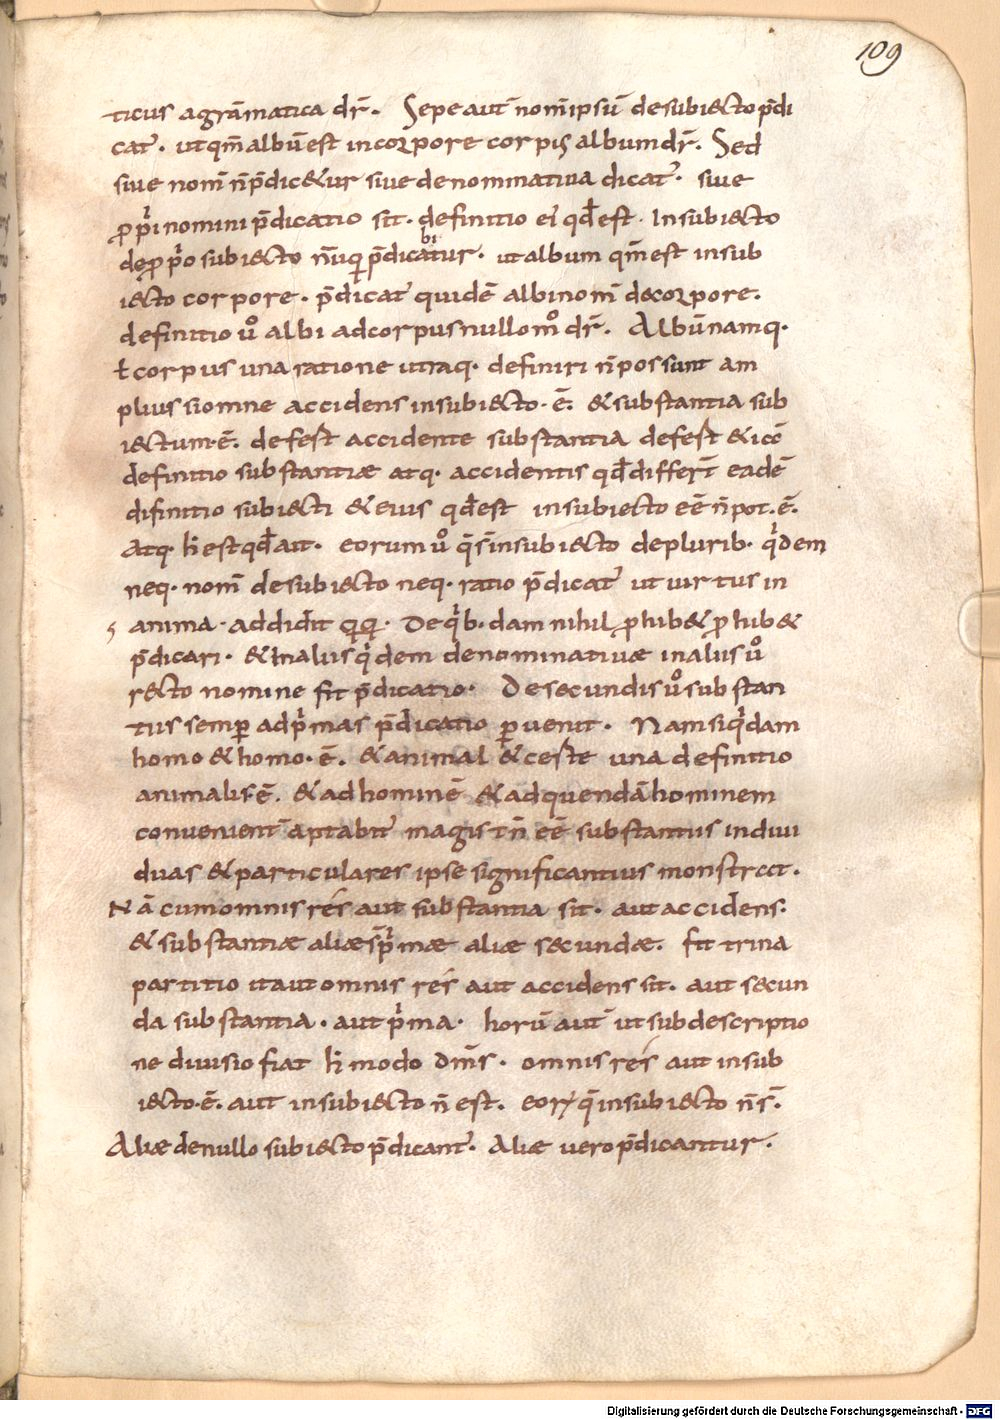 109
ticus agrāmatica dr̄. Sepe aut̄ nom̄ ipsū de subiecto p̄di
cat᷑. ut qm̄ albū est in corpore corpus album dr̄. Sed
siue nom̄ n̄ p̄dicetur siue denominatiua dicat᷑. siue
ꝓpri nomini p̄dicatio sit. definitio ei᷒ qđ est. In subiecto
de ꝓprio subiecto nūq p̄dicabitur. ut album qm̄ est in sub
iecto corpore. p̄dicat᷑ quidē albi nom̄ de corpore.
definitio uͦ albi ad corpus nullo mͦ dr̄. Albū namq.
ł corpus una ratione utraq. definiri n̄ possunt am
plius si omne accidens in subiecto.ē. & substantia sub
iectum.ē. def est accidente substantia def est & iccͦ
definitio substantiæ atq. accidentis qđ differt̄ eadē
difinitio subiecti & eius qđ est in subiecto eē n̄ pot.ē.
atq. h̄ est qđ ait. eorum uͦ q̄ s̄ in subiecto de plurib. qͥdem
neq. nom̄ de subiecto neq. ratio p̄dicat᷑ ut uirtus in
anima. addidit qq. De qͥb.dam nihil ꝓhibet ꝓhibet
p̄dicari. & in alus qͥdem denominatiuæ in alus uͦ
recto nomine fit p̄dicatio. De secundis uͦ substan
tus semp̱ ad pͥmas p̄dicatio p̱uenit. Nam si qͥdam
homo & homo.ē. & animal & ceste una definitio
animalis.ē. & ad hominē & ad quendā hominem
conuenient̄ aptabit᷑ magis t̄n eē substantus indiui
duas & particulares ipse significantius monstrat.
Nā cum omnis rés aut substantia sit. aut accidens.
& substantiæ aliæ s̄ pͥmæ aliæ secundæ. fit trina
partitio ita ut omnis rés aut accidens sit. aut secun
da substantia. aut pͥma. horū aut̄ ut sub descriptio
ne diuisio fiat h̄ modo dm̄s. omnis rés aut in sub
iecto.ē. aut in subiecto n̄ est. eoꝝ q̄ in subiecto n̄ s̄.
Aliæ de nullo subiecto p̄dicant᷑. Aliæ uero p̄dicantur.
Digitalisierung gefördert durch die Deutsche Forschungsgemeinschaft - DFG